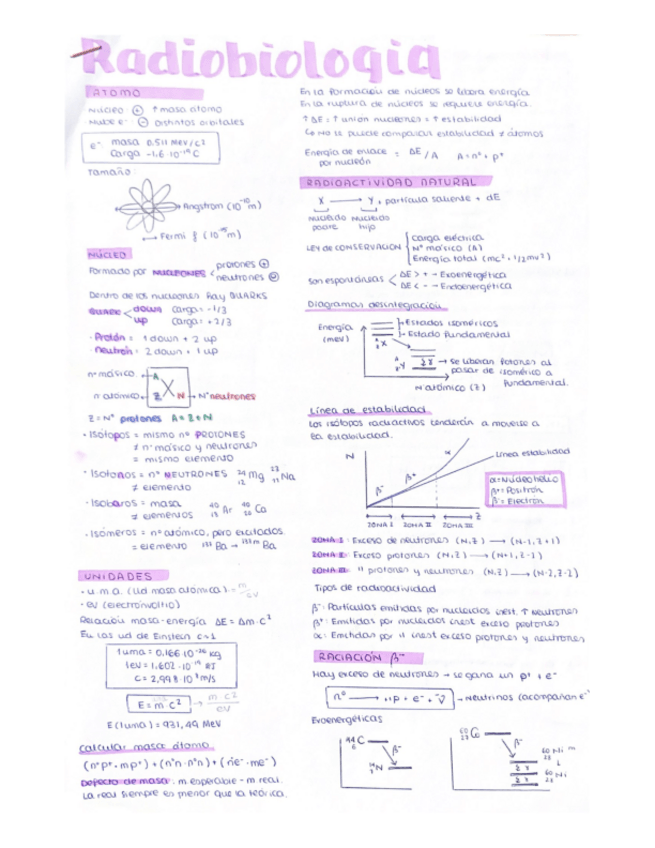 Radiobiologia
ATOMO
Núcleo (+) ↑ masa átomo
Nube e⁻ (-) Distintos orbitales
e⁻ masa 0.511 MeV/c²
carga -1,6·10⁻¹⁹ C
Tamaño:
Angstrom (10⁻¹⁰ m)
Fermi f (10⁻¹⁵ m)
NÚCLEO
Formado por NUCLEONES protones (+)
neutrones
Dentro de los nucleones hay QUARKS
QUARK down carga = -1/3
up carga = +2/3
· Protón = 1 down + 2 up
· Neutrón = 2 down + 1 up
nº másico A
X
nº atómico Z N → Nº neutrones
Z = Nº protones A = Z + N
· Isótopos = mismo nº PROTONES
≠ nº másico y neutrones
= mismo elemento
· Isótonos = nº NEUTRONES ²⁴₁₂Mg ²³₁₁Na
≠ elemento
· Isobaros = masa ⁴⁰₁₈Ar ⁴⁰₂₀Ca
≠ elementos
· Isómeros = nº atómico, pero excitados
= elemento Ba → Ba
UNIDADES
· u.m.a. (Ud masa atómica)
· eV (electronvoltio)
Relación masa-energía ΔE = Δm·c²
En las ud de Einstein c=1
1uma = 0.166·10⁻²⁶ kg
1eV = 1.602·10⁻¹⁹
c = 2,998·10⁸ m/s
E = m·c² → m·c² / eV
E(1uma) = 931,49 MeV
Calcular masa átomo
(nºp⁺·mp⁺) + (nºn·mºn) + (nºe⁻·me⁻)
Defecto de masa: m esperable - m real.
La real siempre es menor que la teórica.
En la formación de núcleos se libera energía
En la ruptura de núcleos se requiere energía.
↑ΔE = ↑ union nucleones = ↑ estabilidad
↳ No se puede comparar estabilidad ≠ átomos
Energía de enlace por nucleón = ΔE/A A = nº + p⁺
RADIOACTIVIDAD NATURAL
X → Y + partícula saliente + dE
Nucleido padre Nucleido hijo
LEY de CONSERVACIÓN Carga eléctrica
Nº másico (A)
Energía total (mc² + 1/2mv²)
Son espontáneas ΔE > + → Exoenergética
ΔE < - → Endoenergética
Diagramas desintegración
Energía (meV)
Estados isoméricos
Estado fundamental
X
Y → se liberan fotones al pasar de isomérico a fundamental.
Nº atómico (Z)
Línea de estabilidad
Los isótopos radiactivos tenderán a moverse a la estabilidad.
N
α
Línea estabilidad
β⁺
β⁻
α = Núcleo helio
β⁺ = Positrón
β⁻ = Electrón
Z
ZONA I ZONA II ZONA III
ZONA I: Exceso de neutrones (N,Z) → (N-1, Z+1)
ZONA II: Exceso protones (N,Z) → (N+1, Z-1)
ZONA III: " protones y neutrones (N,Z) → (N-2, Z-2)
Tipos de radioactividad
β⁻: Partículas emitidas por nucleidos inest. ↑ Neutrones
β⁺: Emitidas por nucleidos inest exceso protones
α: Emitidas por " inest exceso protones y neutrones
RACIACIÓN β⁻
Hay exceso de neutrones → se gana un p⁺ + e⁻
nº → p + e⁻ + ν̄ → Neutrinos (acompañan e⁻)
Exoenergéticas
¹⁴₆C
β⁻
N
Co
β⁻
Ni
Ni